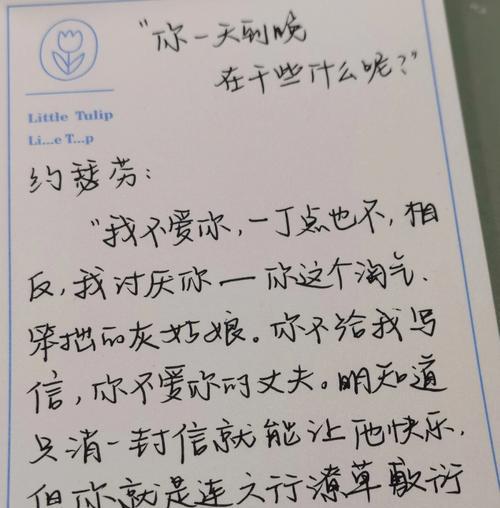 “你一天到晚
在干些什么呢？”
Little Tulip
Li...e T...p
约瑟芬：
“我不爱你，一丁点也不，相
反，我讨厌你——你这个淘气、
笨拙的灰姑娘。你不给我写
信，你不爱你的丈夫。明知道
只消一封信就能让他快乐，
但你就是连六行潦草敷衍